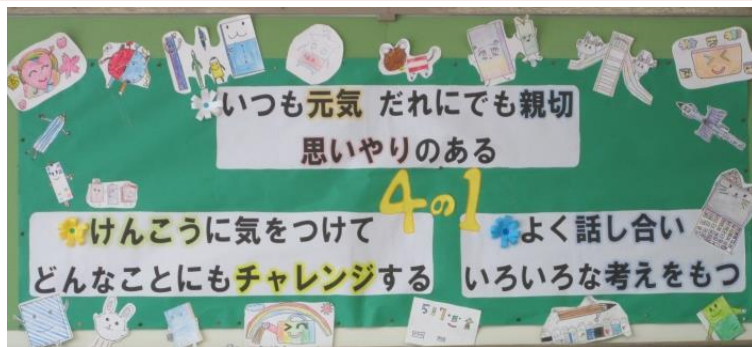 いつも元気 だれにでも親切
思いやりのある
4の1
けんこうに気をつけて
どんなことにもチャレンジする
よく話し合い
いろいろな考えをもつ